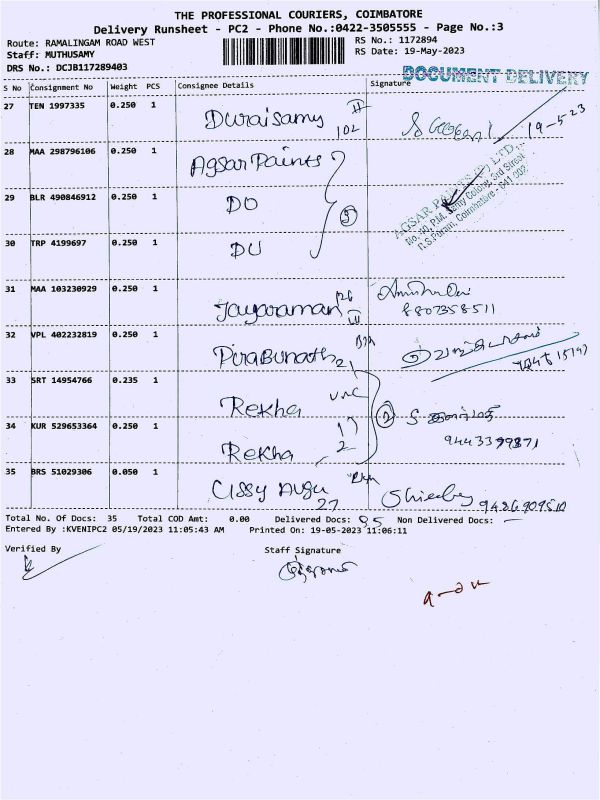 THE PROFESSIONAL COURIERS, COIMBATORE
Delivery Runsheet - PC2 - Phone No.:0422-3505555 - Page No.:3
Route: RAMALINGAM ROAD WEST RS No.: 1172894
Staff: MUTHUSAMY RS Date: 19-May-2023
DRS No.: DCJB117289403
DOCUMENT DELIVERY
S No Consignment No Weight PCS Consignee Details Signature
27 TEN 1997335 0.250 1 Duraisamy II 102 19-5-23
28 MAA 298796106 0.250 1 Agsar Paints
AGSAR PAINTS (P) LTD.,
No. 40, P.M. Samy Colony, 3rd Street
R.S.Puram, Coimbatore - 641 002.
29 BLR 490846912 0.250 1 DO 3
30 TRP 4199697 0.250 1 DO
31 MAA 103230929 0.250 1 Jayaraman
8807358511
32 VPL 402232819 0.250 1 21
33 SRT 14954766 0.235 1 Rekha 2
34 KUR 529653364 0.250 1 Rekha 17 2
35 BRS 51029306 0.050 1 Cissy 27
Total No. Of Docs: 35 Total COD Amt: 0.00 Delivered Docs: 35 Non Delivered Docs: —
Entered By :KVENIPC2 05/19/2023 11:05:43 AM Printed On: 19-05-2023 11:06:11
Verified By Staff Signature